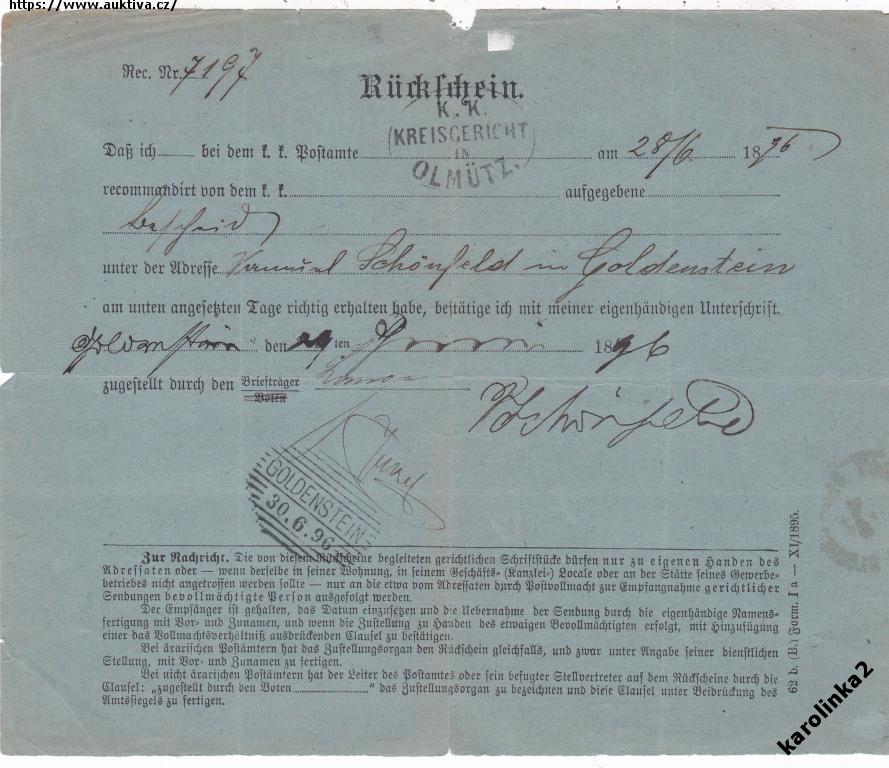 https://www.auktiva.cz/
Rec. Nr. 7197
Rückschein.
K. K.
KREISGERICHT
IN
OLMÜTZ.
Daß ich bei dem k. k. Postamte am 28/6 1896
recommandirt von dem k. k. aufgegebene
Bescheid
unter der Adresse Samuel Schönfeld in Goldenstein
am unten angesetzten Tage richtig erhalten habe, bestätige ich mit meiner eigenhändigen Unterschrift.
Goldenstein den 29 ten 1896
zugestellt durch den Briefträger
Boten
Schönfeld
GOLDENSTEIN
30.6.96
Zur Nachricht. Die von diesem Rückscheine begleiteten gerichtlichen Schriftstücke dürfen nur zu eigenen Handen des
Adressaten oder — wenn derselbe in seiner Wohnung, in seinem Geschäfts- (Kanzlei-) Locale oder an der Stätte seines Gewerbe-
betriebes nicht angetroffen werden sollte — nur an die etwa vom Adressaten durch Postvollmacht zur Empfangnahme gerichtlicher
Sendungen bevollmächtigte Person ausgefolgt werden.
Der Empfänger ist gehalten, das Datum einzusetzen und die Uebernahme der Sendung durch die eigenhändige Namens-
fertigung mit Vor- und Zunamen, und wenn die Zustellung zu Handen des etwaigen Bevollmächtigten erfolgt, mit Hinzufügung
einer das Vollmachtsverhältniß ausdrückenden Clausel zu bestätigen.
Bei ärarischen Postämtern hat das Zustellungsorgan den Rückschein gleichfalls, und zwar unter Angabe seiner dienstlichen
Stellung, mit Vor- und Zunamen zu fertigen.
Bei nicht ärarischen Postämtern hat der Leiter des Postamtes oder sein befugter Stellvertreter auf dem Rückscheine durch die
Clausel: „zugestellt durch den Boten “ das Zustellungsorgan zu bezeichnen und diese Clausel unter Beidrückung des
Amtssiegels zu fertigen.
62 b. (B.) Form. I a — XI/1895.
karolinka2